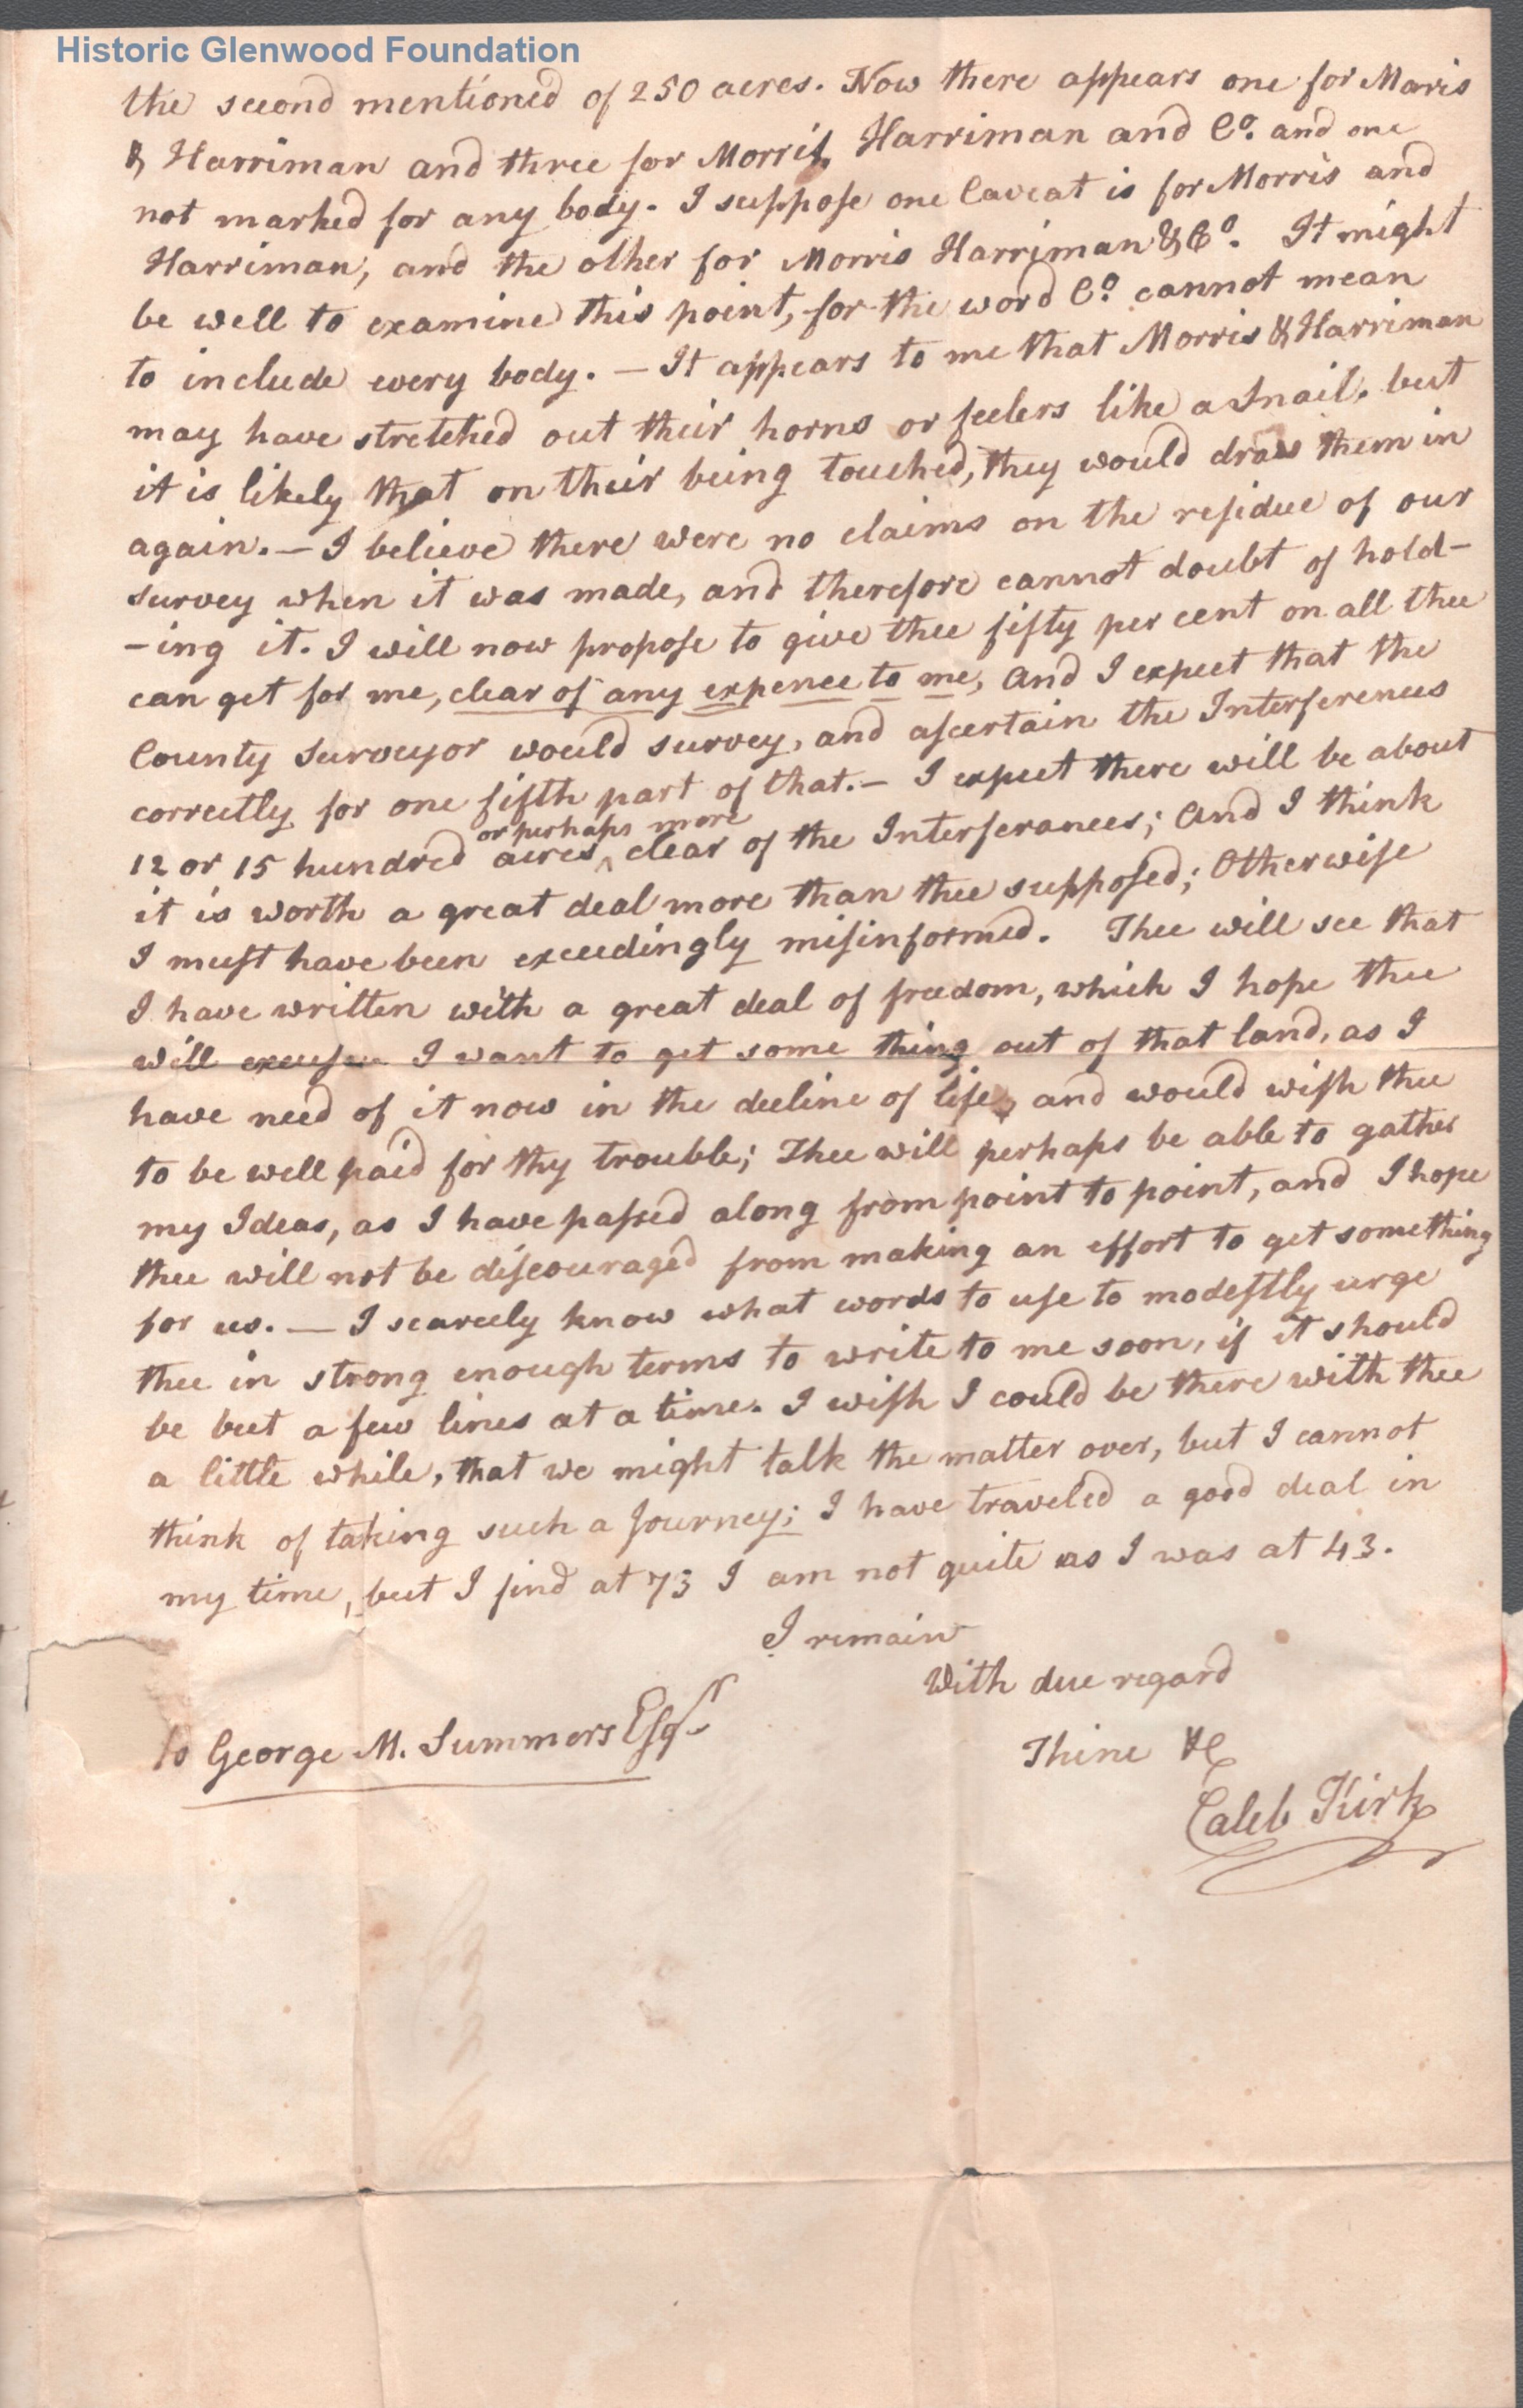 Historic Glenwood Foundation
the second mentioned of 250 acres. Now there appears one for Morris
& Harriman and three for Morris, Harriman and Co. and one
not marked for any body. I suppose one Caveat is for Morris and
Harriman, and the other for Morris Harriman & Co. It might
be well to examine this point, for the word Co. cannot mean
to include every body. — It appears to me that Morris & Harriman
may have stretched out their horns or feelers like a Snail, but
it is likely that on their being touched, they would draw them in
again. — I believe there were no claims on the residue of our
survey when it was made, and therefore cannot doubt of hold-
-ing it. I will now propose to give thee fifty per cent on all thee
can get for me, clear of any expence to me, and I expect that the
County Surveyor would survey, and ascertain the Interferences
correctly for one fifth part of that. — I expect there will be about
or perhaps more
12 or 15 hundred acres ^ clear of the Interferances; and I think
it is worth a great deal more than thee supposed; Otherwise
I must have been exceedingly misinformed. Thee will see that
I have written with a great deal of freedom, which I hope thee
will excuse I want to get some thing out of that land, as I
have need of it now in the decline of life, and would wish thee
to be well paid for thy trouble; Thee will perhaps be able to gather
my Ideas, as I have passed along from point to point, and I hope
thee will not be discouraged from making an effort to get something
for us. — I scarcely know what words to use to modestly urge
thee in strong enough terms to write to me soon, if it should
be but a few lines at a time. I wish I could be there with thee
a little while, that we might talk the matter over, but I cannot
think of taking such a Journey; I have traveled a good deal in
my time, but I find at 73 I am not quite as I was at 43.
I remain
With due regard
to George M. Summers Esqr
Thine &c
Caleb Kirk